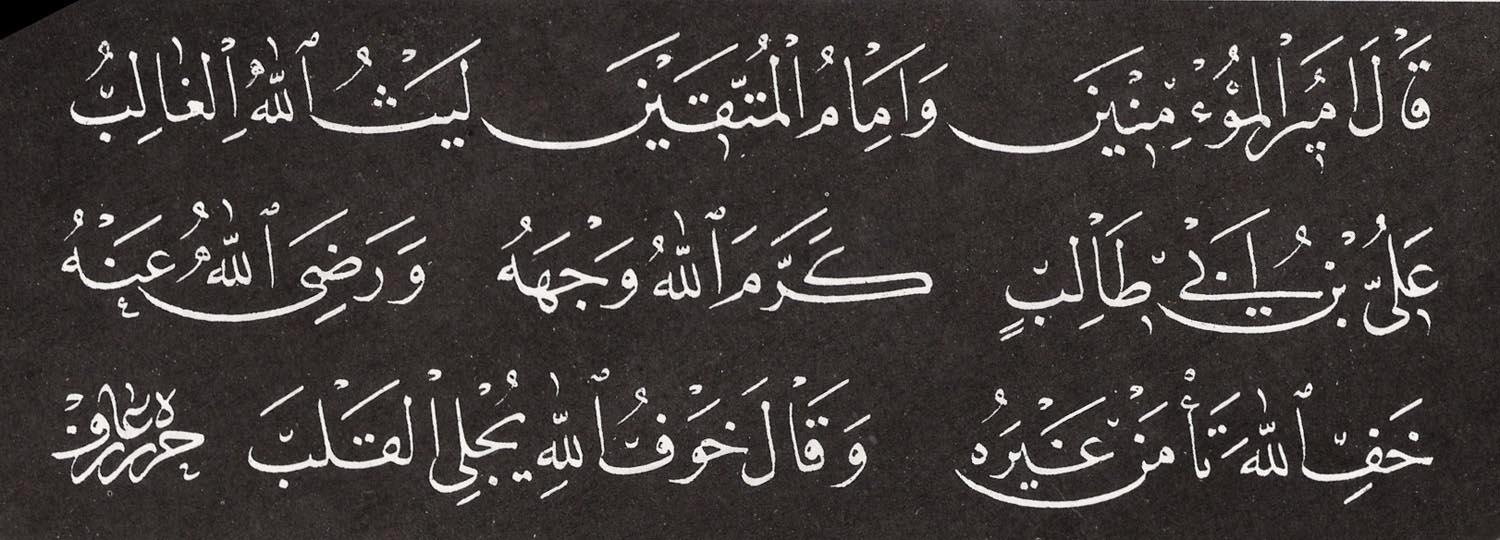 قَالَ اَمِيرُ الْمُؤْمِنِينَ وَاِمَامُ الْمُتَّقِينَ لَيْثُ اللهِ الْغَالِبُ
عَلِيُّ بْنُ اَبِي طَالِبٍ كَرَّمَ اللهُ وَجْهَهُ وَرَضِيَ اللهُ عَنْهُ
خَفِ اللهَ تَأْمَنْ غَيْرَهُ وَقَالَ خَوْفُ اللهِ يُجْلِي الْقَلْبَ حرره على عارف